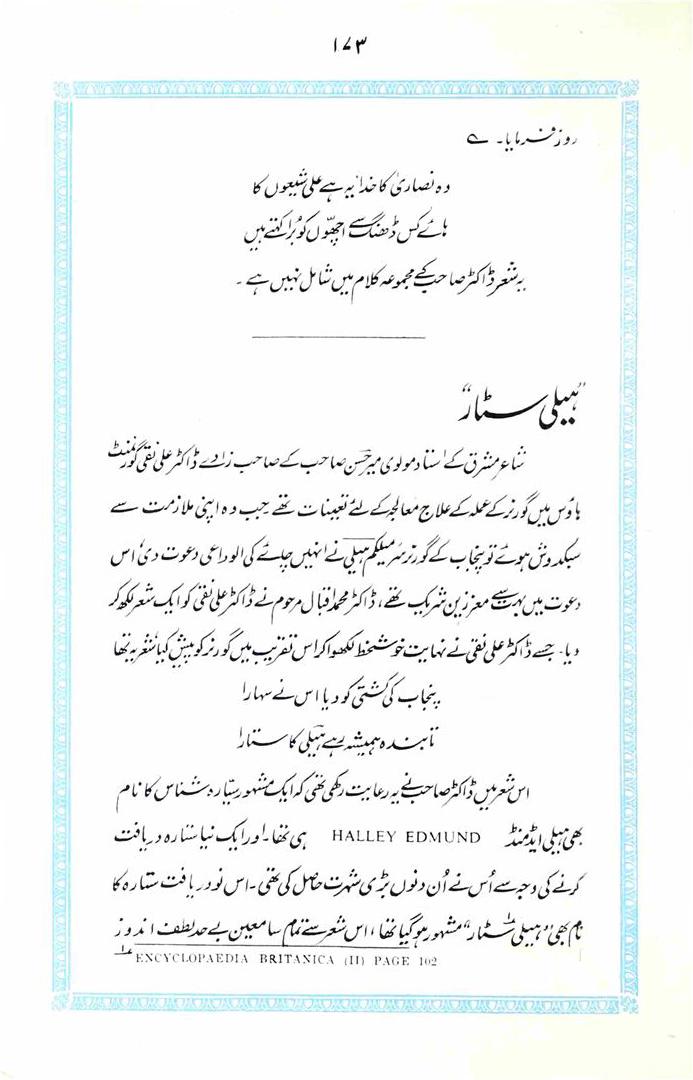 ۱۷۳
روز فرمایا۔ ے
وہ نصاریٰ کا خدا یہ ہے علی شیعوں کا
ہائے کس ڈھنگ سے اچھوں کو بُرا کہتے ہیں
یہ شعر ڈاکٹر صاحب کے مجموعہ کلام میں شامل نہیں ہے ۔
”ہیلی سٹار“
شاعرِ مشرق کے اُستاد مولوی میر حسن صاحب کے صاحب زادے ڈاکٹر علی نقی گورنمنٹ
ہاؤس میں گورنر کے عملہ کے علاج معالجہ کے لئے تعینات تھے جب وہ اپنی ملازمت سے
سبکدوش ہوئے تو پنجاب کے گورنر سر میلکم ہیلی نے انہیں چائے کی الوداعی دعوت دی، اس
دعوت میں بہت سے معززین شریک تھے، ڈاکٹر محمد اقبال مرحوم نے ڈاکٹر علی نقی کو ایک شعر لکھ کر
دیا۔ جسے ڈاکٹر علی نقی نے نہایت خوشخط لکھوا کر اس تقریب میں گورنر کو پیش کیا شعر یہ تھا
پنجاب کی کشتی کو دیا اس نے سہارا
تابندہ ہمیشہ رہے ہیلی کا ستارا
اس شعر میں ڈاکٹر صاحب نے یہ رعایت رکھی تھی کہ ایک مشہور سیّارہ شناس کا نام
بھی ہیلی ایڈمنڈ HALLEY EDMUND ہی تھا۔ اور ایک نیا ستارہ دریافت
کرنے کی وجہ سے اُس نے اُن دنوں بڑی شہرت حاصل کی تھی۔ اس نو دریافت ستارہ کا
نام بھی ”ہیلی سٹار“ ۱؎ مشہور ہو گیا تھا، اس شعر سے تمام سامعین بے حد لطف اندوز
۱؎ ENCYCLOPAEDIA BRITANICA (II) PAGE 102